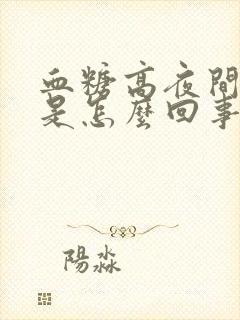 血糖高夜間
是怎麼回事
陽淼